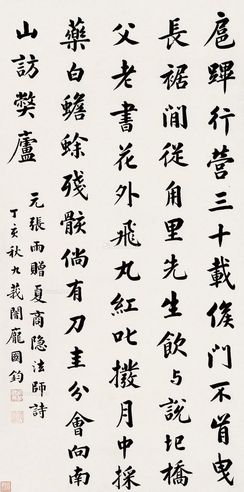 扈蹕行營三十載侯門不肯曳
長裾閒從角里先生飲与說圯橋
父老書花外飛丸紅叱撥月中採
藥白蟾蜍殘骸倘有刀圭分會向南
山訪弊廬
元張雨贈夏商隐法師詩
丁亥秋九義閣龐國鈞